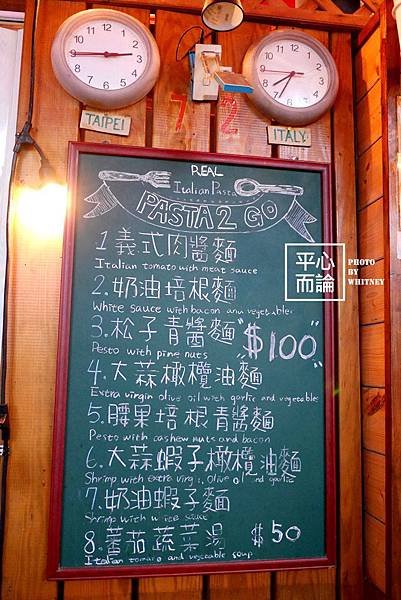 TAIPEI
ITALY
72
REAL
Italian Pasta
PASTA 2 GO
1 義式肉醬麵
Italian tomato with meat sauce
2. 奶油培根麵
White sauce with bacon and vegetables
3. 松子青醬麵
Pesto with pine nuts
"$100"
4. 大蒜橄欖油麵
Extra virgin olive oil with garlic and vegetables
5. 腰果培根青醬麵
Pesto with cashew nuts and bacon
6. 大蒜蝦子橄欖油麵
Shrimp with extra virgin olive oil and garlic
7. 奶油蝦子麵
Shrimp with white sauce
8. 蕃茄蔬菜湯 $50
Italian tomato and vegetable soup
平心而論
PHOTO
BY
WHITNEY